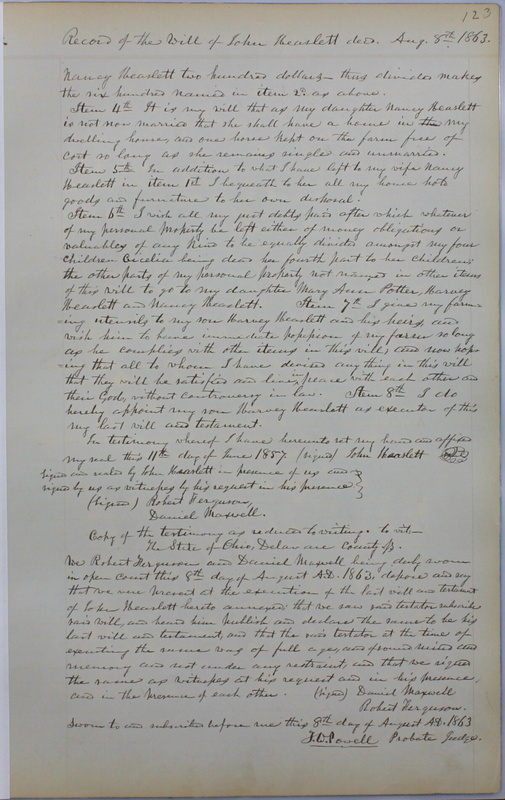 123
Record of the Will of John Heaslett decd. Aug. 8th 1863.
Nancy Heaslett two hundred dollars - thus divided makes
the six hundred named in item 2d as above.
Item 4th It is my will that as my daughter Nancy Heaslett
is not now married that she shall have a home in the my
dwelling house, and one horse kept on the farm free of
cost so long as she remains single and unmarried.
Item 5th In addition to what I have left to my wife Nancy
Heaslett in item 1st I bequeath to her all my house hold
goods and furniture to her own disposal.
Item 6th I wish all my just debts paid after which whatever
of my personal property be left either of money obligations or
valuables of any kind to be equally divided amongst my four
children Cecelia being dead her fourth part to her children
the other parts of my personal property not named in other items
of this will to go to my daughter Mary Ann Potter, Harvey
Heaslett and Nancy Heaslett. Item 7th I give my farm-
ing utensils to my son Harvey Heaslett and his heirs, and
wish him to have immediate possession of my farm so long
as he complies with other items in this will, and now hop-
ing that all to whom I have devised anything in this will
that they will be satisfied and live in peace with each other and
their God, without controversy in law. Item 8th I do
hereby appoint my son Harvey Heaslett as executor of this
my last will and testament.
In testimony whereof I have hereunto set my hand and affixed
my seal this 11th day of June 1857 (signed) John Heaslett seal
Signed and sealed by John Heaslett in presence of us and
signed by us as witnesses by his request in his presence
(Signed) Robert Ferguson,
Daniel Maxwell.
Copy of the testimony as reduced to writing - to wit -
The State of Ohio, Delaware County ss.
We Robert Ferguson and Daniel Maxwell being duly sworn
in open court this 8th day of August A.D. 1863, depose and say
that we were present at the execution of the last will and testament
of John Heaslett hereto annexed that we saw said testator subscribe
said will, and heard him publish and declare the same to be his
last will and testament, and that the said testator at the time of
executing the same was of full age, and of sound mind and
memory and not under any restraint, and that we signed
the same as witnesses at his request and in his presence,
and in the presence of each other. (Signed) Daniel Maxwell
Robert Ferguson.
Sworn to and subscribed before me this 8th day of August A.D. 1863
T.W. Powell Probate Judge.